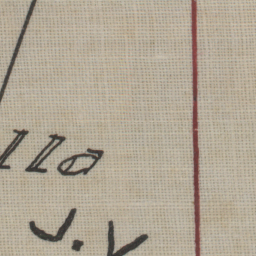 lla
J. V